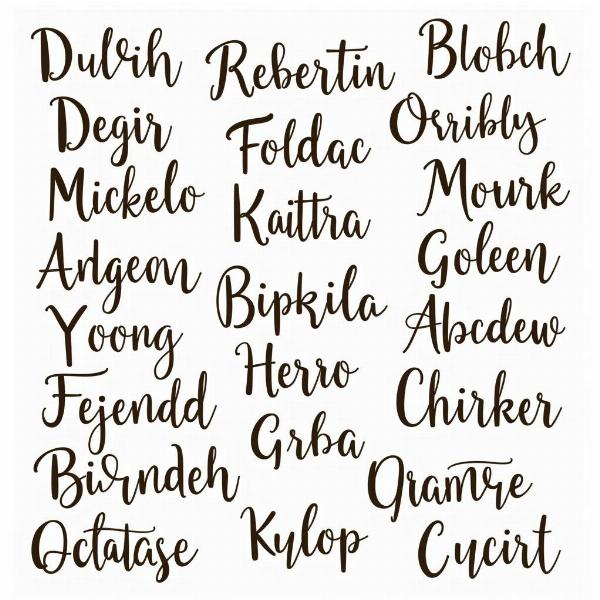 Dulrih
Rebertin
Blobch
Degir
Foldac
Orribly
Mickelo
Kaittra
Mourk
Arlgeom
Bipkila
Goleen
Yoong
Herro
Abcdew
Fejendd
Grba
Chirker
Birndeh
Gramre
Octatase
Kylop
Cycirt